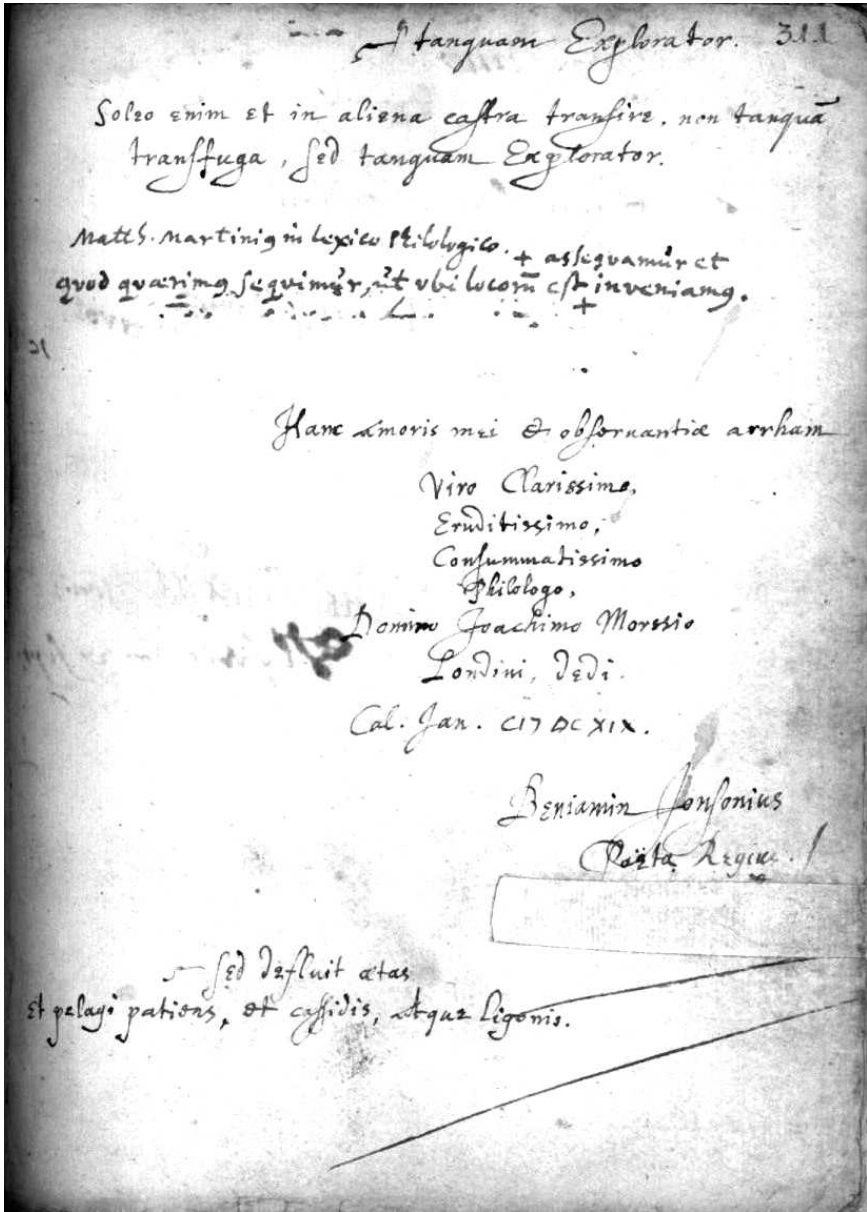 tanquam Explorator. 311
Soleo enim et in aliena castra transire, non tanquā
transfuga, sed tanquam Explorator.
Matth. Martiniꝰ in Lexico Philologico.
+ assequamur et
quod quærimꝰ sequimur, ut ubi locorū est inveniamꝰ.
+
Hanc amoris mei & obseruantiæ arrham
Viro Clarissimo,
Eruditissimo,
Consummatissimo
Philologo,
Domino Joachimo Morssio
Londini, dedi.
Cal. Jan. CIƆ DC XIX.
Beniamin Jonsonius
Poëta Regius.
Sed defluit ætas
Et pelagi patiens, et cassidis, atque ligonis.